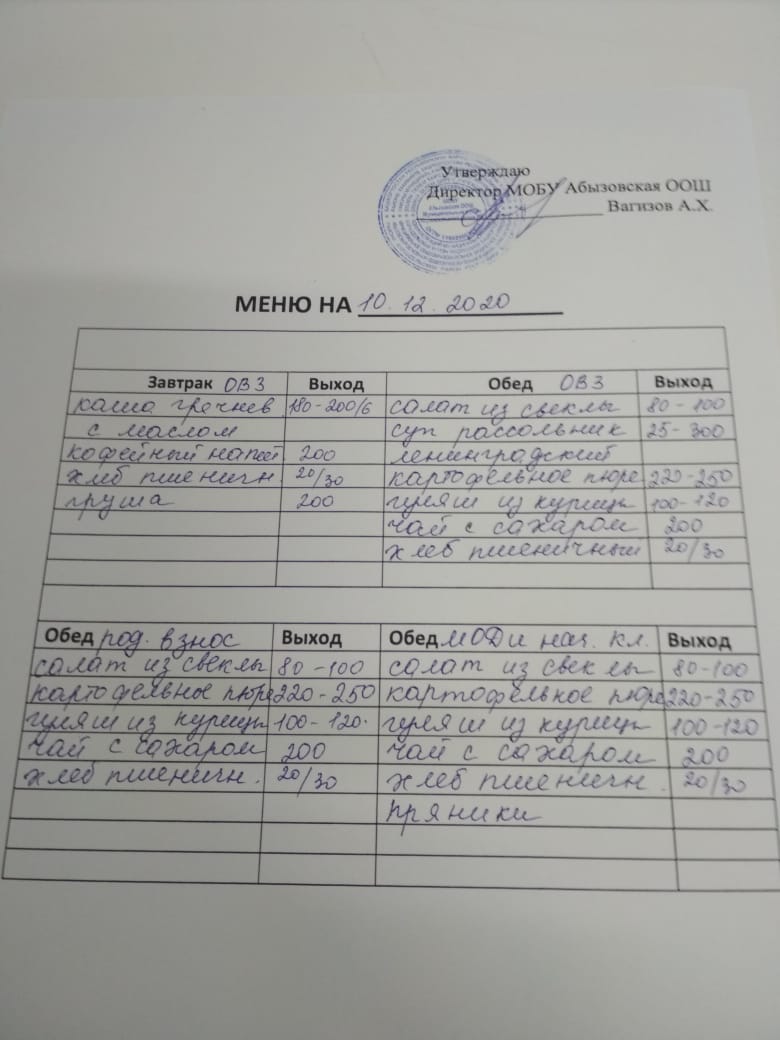 Утверждаю
Директор МОБУ Абызовская ООШ
Вагизов А.Х.
МЕНЮ НА 10.12.2020
Завтрак ОВЗ Выход Обед ОВЗ Выход
каша гречнев 180-200/6 салат из свеклы 80-100
с маслом суп рассольник 25-300
кофейный напой 200 ленинградский
хлеб пшеничн 20/30 картофельное пюре 220-250
груша 200 гуляш из курицы 100-120
чай с сахаром 200
хлеб пшеничный 20/30
Обед род. взнос Выход Обед МОД и нач. кл. Выход
салат из свеклы 80-100 салат из свеклы 80-100
картофельное пюре 220-250 картофельное пюре 220-250
гуляш из курицы 100-120. гуляш из курицы 100-120
чай с сахаром 200 чай с сахаром 200
хлеб пшеничн. 20/30 хлеб пшеничн. 20/30
пряники